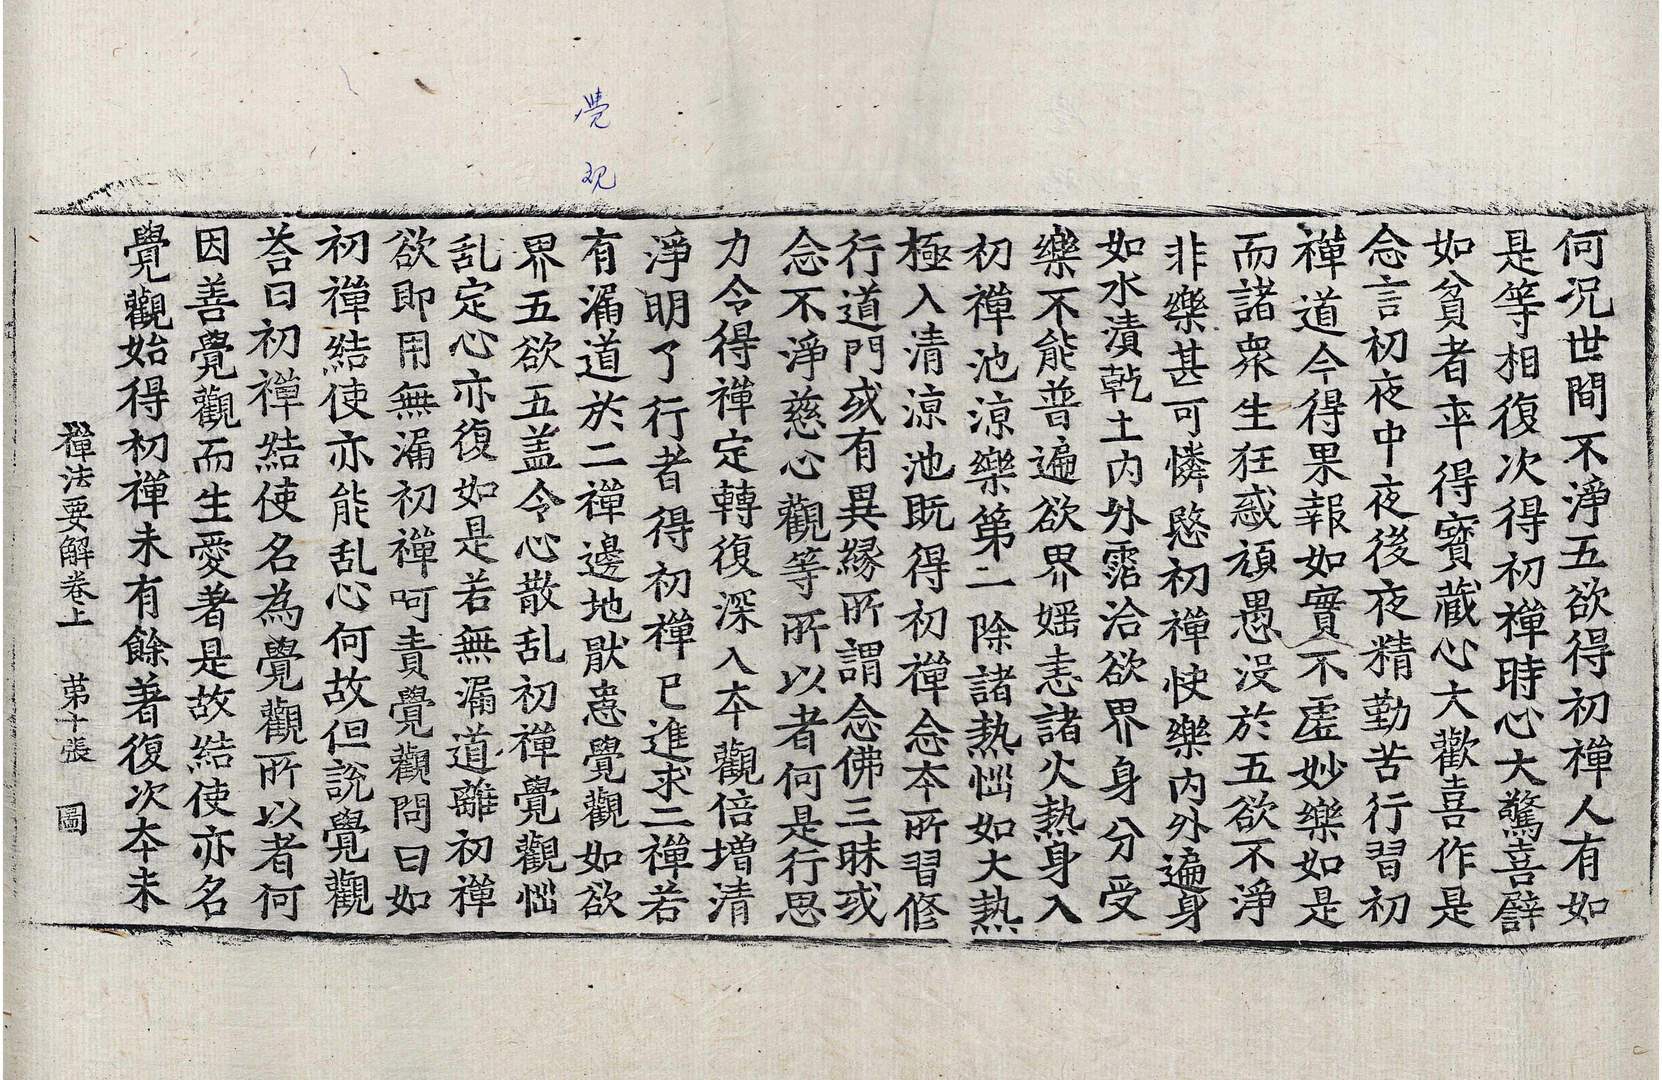 覺
观
何况世間不淨五欲得初禪人有如
是等相復次得初禪時心大驚喜譬
如貧者卒得寳蔵心大歡喜作是
念言初夜中夜後夜精勤苦行習初
禪道今得果報如實不虛妙樂如是
而諸衆生狂惑頑愚没於五欲不淨
非樂甚可憐愍初禪快樂内外遍身
如水漬乾土内外霑洽欲界身分受
樂不能普遍欲界婬恚諸火熱身入
初禪池涼樂第一除諸熱惱如大熱
極入清涼池既得初禪念本所習修
行道門或有異縁所謂念佛三昧或
念不淨慈心觀等所以者何是行思
力令得禪定轉復深入本觀倍增清
淨明了行者得初禪已進求二禪若
有漏道於二禪邊地猒患覺觀如欲
界五欲五盖令心散乱初禪覺觀惱
乱定心亦復如是若無漏道離初禪
欲即用無漏初禪呵責覺觀問曰如
初禪結使亦能乱心何故但說覺觀
荅曰初禪結使名為覺觀所以者何
因善覺觀而生愛著是故結使亦名
覺觀始得初禪未有餘著復次本未
禪法要解卷上 苐十張 圖